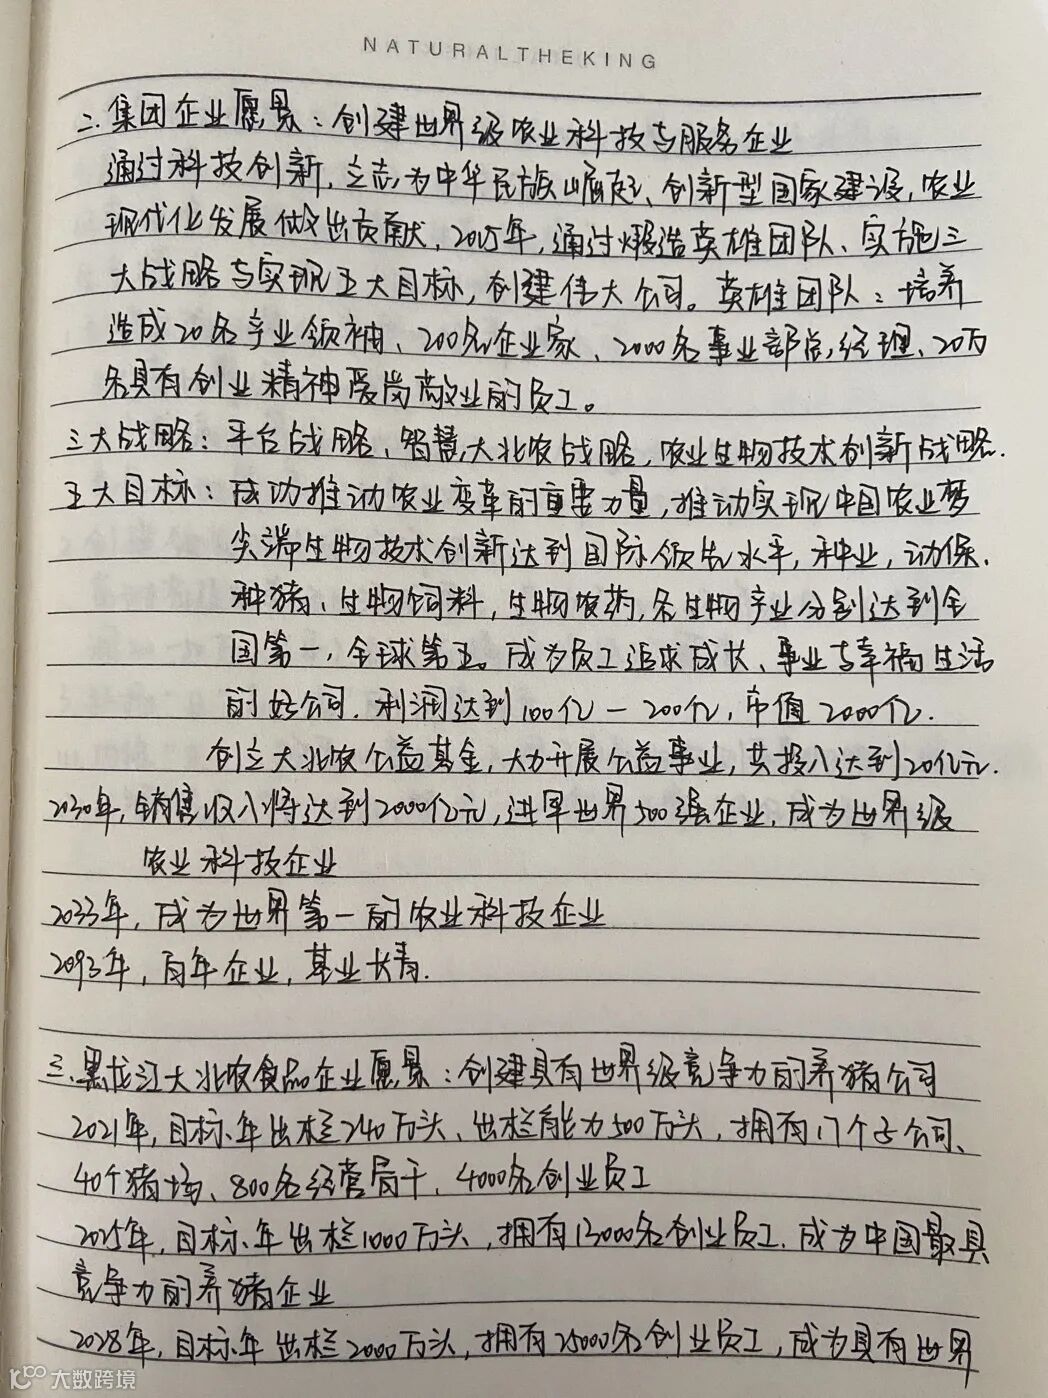 NATURALTHEKING
二.集团企业愿景：创建世界级农业科技与服务企业
通过科技创新,立志为中华民族崛起、创新型国家建设,农业
现代化发展做出贡献,2025年,通过煅造英雄团队、实施三
大战略与实现五大目标,创建伟大公司。英雄团队：培养
造成20名产业领袖、200名企业家、2000名事业部总经理、20万
名具有创业精神爱岗敬业的员工。
三大战略：平台战略、智慧大北农战略,农业生物技术创新战略.
五大目标：成功推动农业变革的重要力量,推动实现中国农业梦
尖端生物技术创新达到国际领先水平,种业,动保.
种猪、生物饲料,生物农药,各生物产业分别达到全
国第一,全球第五。成为员工追求成长、事业与幸福生活
的好公司.利润达到100亿—200亿,市值2000亿.
创立大北农公益基金,大力开展公益事业,共投入达到20亿元.
2030年,销售收入将达到2000亿元,进军世界500强企业,成为世界级
农业科技企业
2033年,成为世界第一的农业科技企业
2093年,百年企业,基业长青.
三.黑龙江大北农食品企业愿景：创建具有世界级竞争力的养猪公司
2021年,目标、年出栏240万头、出栏能力500万头,拥有17个子公司、
40个猪场、800名经营骨干、4000名创业员工
2025年,目标、年出栏1000万头,拥有13000名创业员工.成为中国最具
竞争力的养猪企业
2028年,目标年出栏2000万头,拥有25000名创业员工,成为具有世界
大数跨境